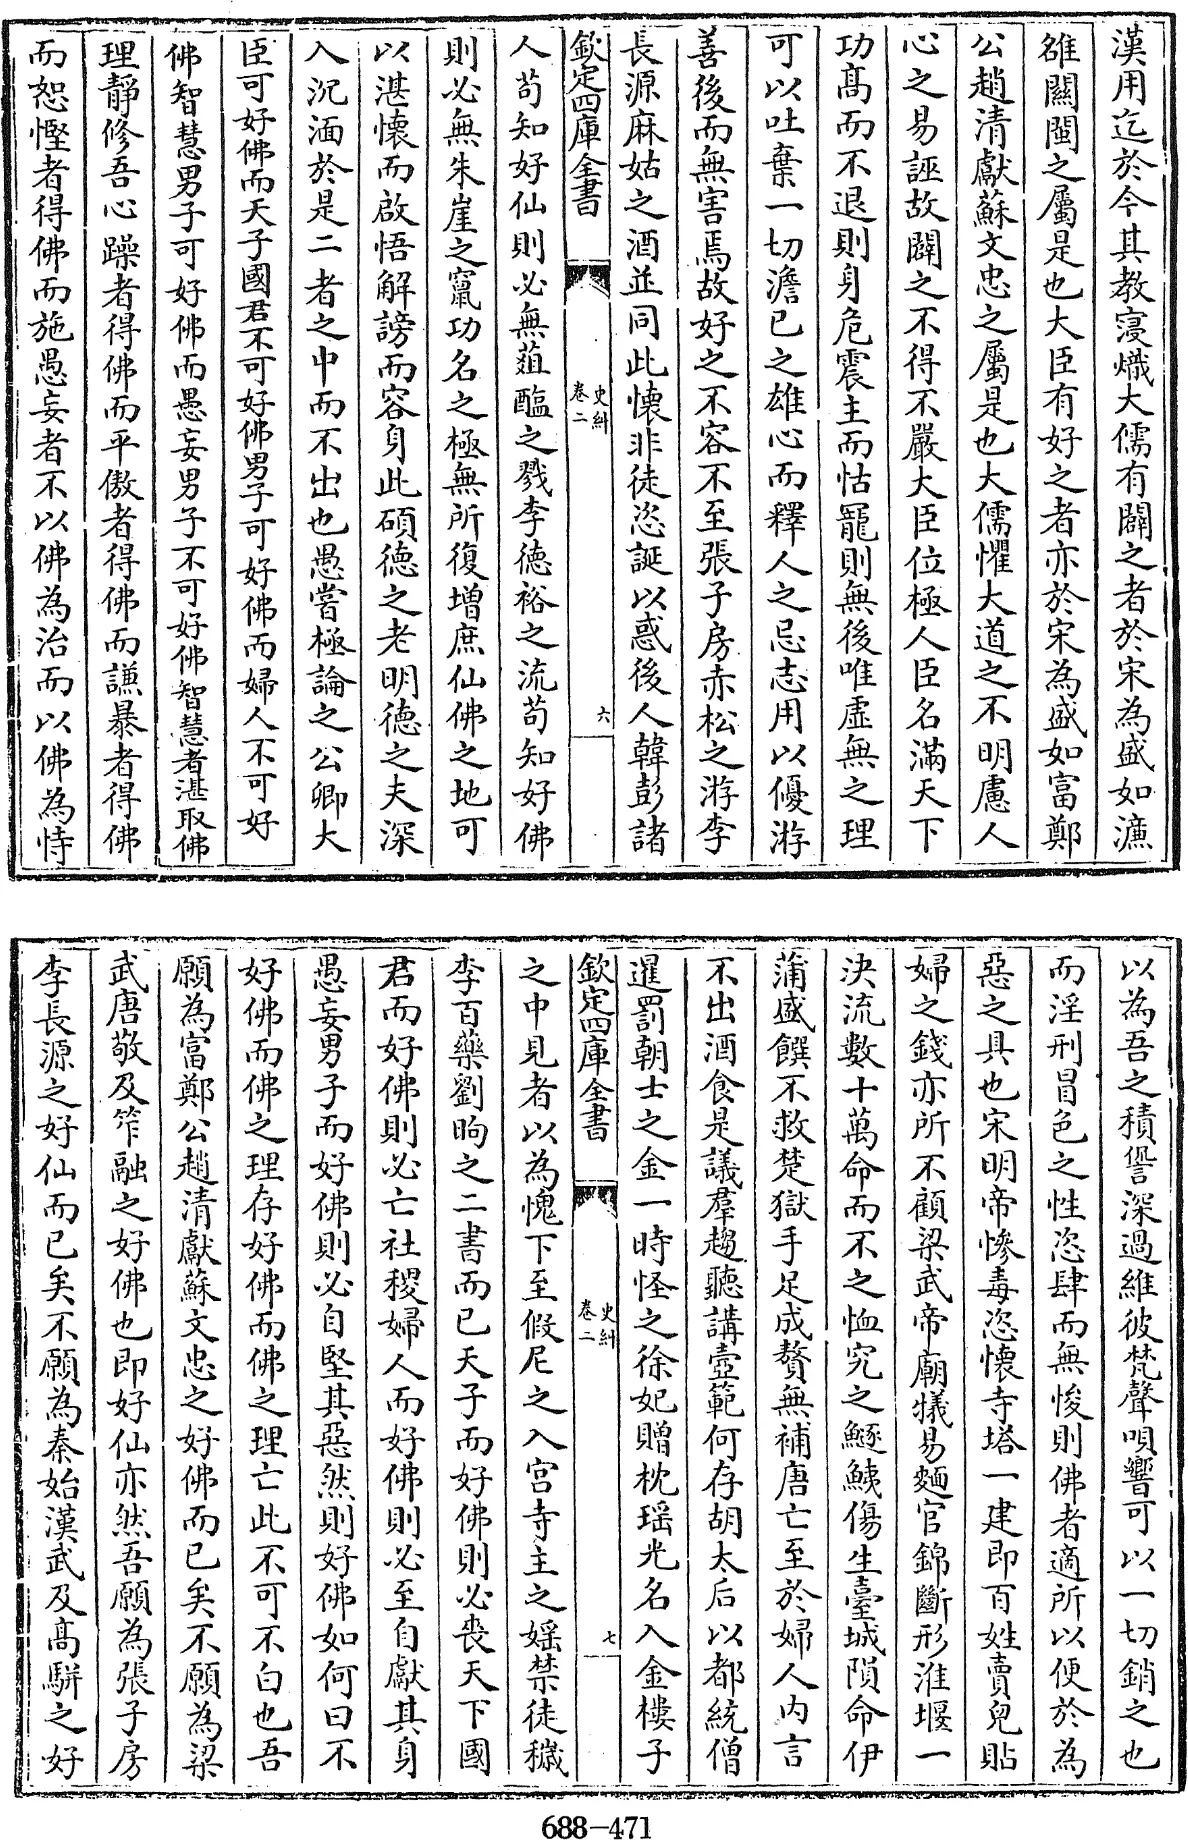 漢用迄於今其教寖熾大儒有闢之者於宋為盛如濂
雒關閩之屬是也大臣有好之者亦於宋為盛如富鄭
公趙清獻蘇文忠之屬是也大儒懼大道之不明慮人
心之易誣故闢之不得不嚴大臣位極人臣名滿天下
功髙而不退則身危震主而怙寵則無後唯虛無之理
可以吐棄一切澹已之雄心而釋人之忌志用以優游
善後而無害焉故好之不容不至張子房赤松之游李
長源麻姑之酒並同此懷非徒恣誕以惑後人韓彭諸
欽定四庫全書
史糾
卷二
六
人苟知好仙則必無葅醢之戮李德裕之流苟知好佛
則必無朱崖之竄功名之極無所復增庶仙佛之地可
以湛懷而啟悟解謗而容身此碩德之老明德之夫深
入沉湎於是二者之中而不出也愚嘗極論之公卿大
臣可好佛而天子國君不可好佛男子可好佛而婦人不可好
佛智慧男子可好佛而愚妄男子不可好佛智慧者湛取佛
理靜修吾心躁者得佛而平傲者得佛而謙暴者得佛
而恕慳者得佛而施愚妄者不以佛為治而以佛為恃
以為吾之積愆深過維彼梵聲唄響可以一切銷之也
而淫刑冒色之性恣肆而無悛則佛者適所以便於為
惡之具也宋明帝慘毒恣懷寺塔一建即百姓賣兒貼
婦之錢亦所不顧梁武帝廟犧易麵官錦斷形淮堰一
決流數十萬命而不之恤究之鱁鮧傷生臺城隕命伊
蒲盛饌不救楚獄手足成贅無補唐亡至於婦人内言
不出酒食是議羣趨聽講壼範何存胡太后以都統僧
暹罰朝士之金一時怪之徐妃贈枕瑶光名入金樓子
欽定四庫全書
史糾
卷二
七
之中見者以為愧下至假尼之入宫寺主之婬禁徒穢
李百藥劉昫之二書而已天子而好佛則必喪天下國
君而好佛則必亡社稷婦人而好佛則必至自獻其身
愚妄男子而好佛則必自堅其惡然則好佛如何曰不
好佛而佛之理存好佛而佛之理亡此不可不白也吾
願為富鄭公趙清獻蘇文忠之好佛而已矣不願為梁
武唐敬及笮融之好佛也即好仙亦然吾願為張子房
李長源之好仙而已矣不願為秦始漢武及髙駢之好
688-471